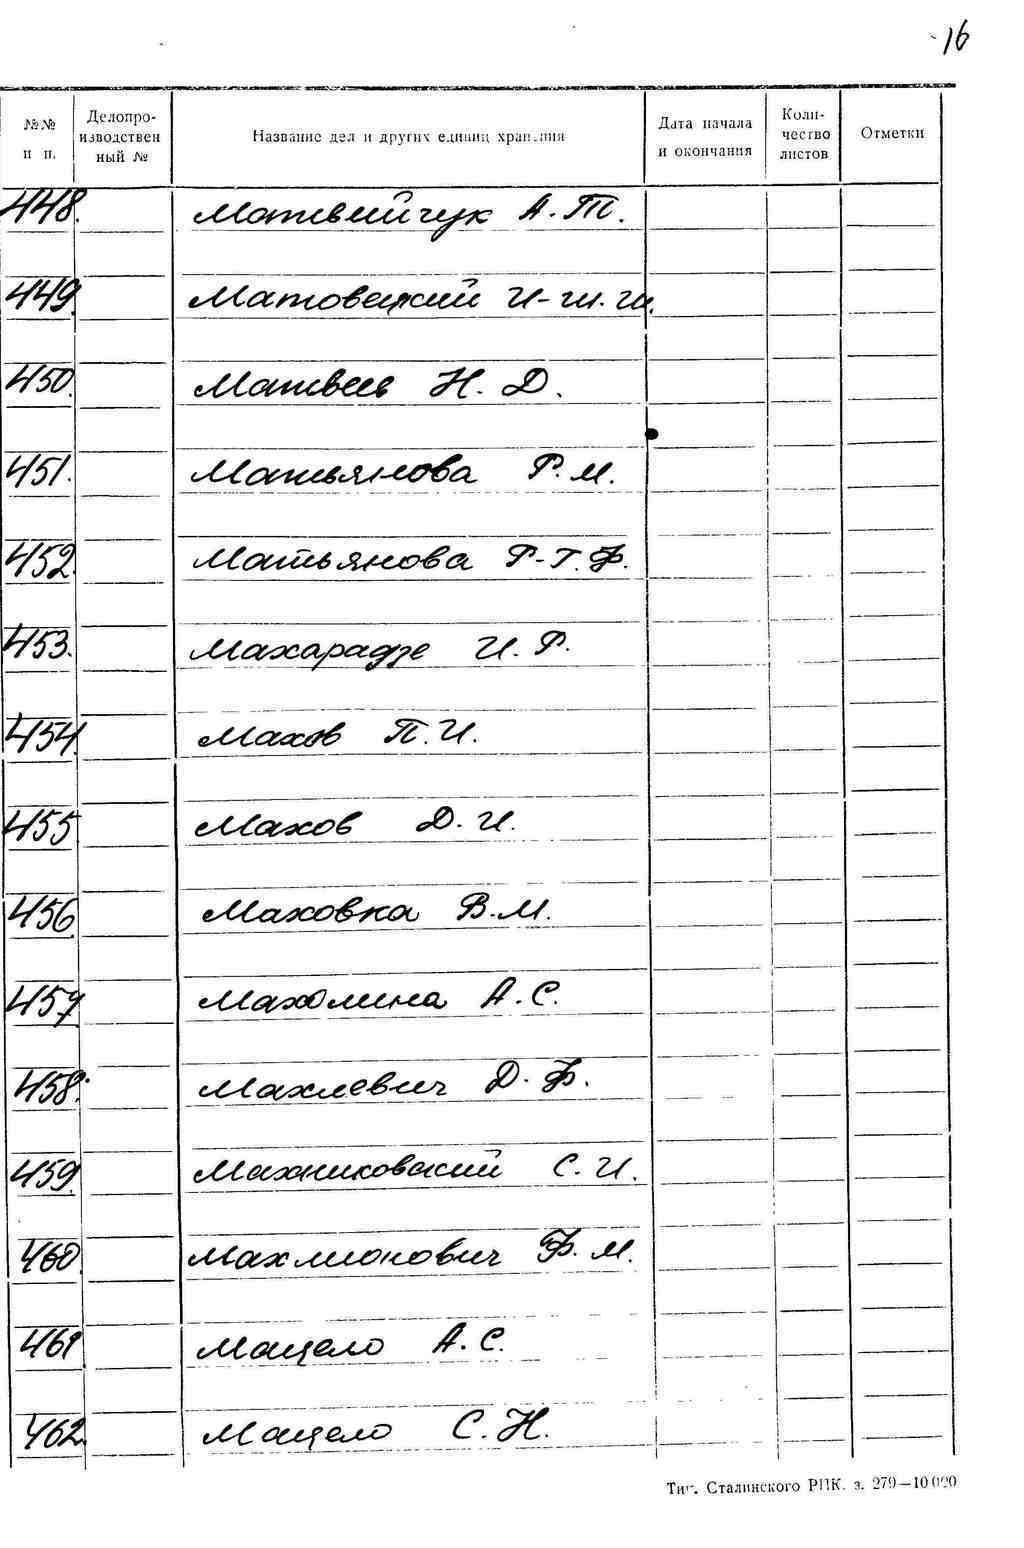 16
№№ п п. Делопроизводствен ный № Название дел и других единиц хранения Дата начала и окончания Количество листов Отметки
448. Матвийчук А. Т.
449. Матовецкий И-
450. Матвеев Н. Д.
451. Матьянова Р. М.
452. Матьянова Р-Г. Ф.
453. Махарадзе И. Р.
454. Махов П. И.
455 Махов Д. И.
456. Маховка В. М.
457 Махолина А. С.
458. Махлевич Д. Ф.
459. Махниковский С. И.
460. Махлионович Ф. М.
461 Мацело А. С.
462. Мацело С. Н.
Тип. Сталинского РПК. з. 279—10000